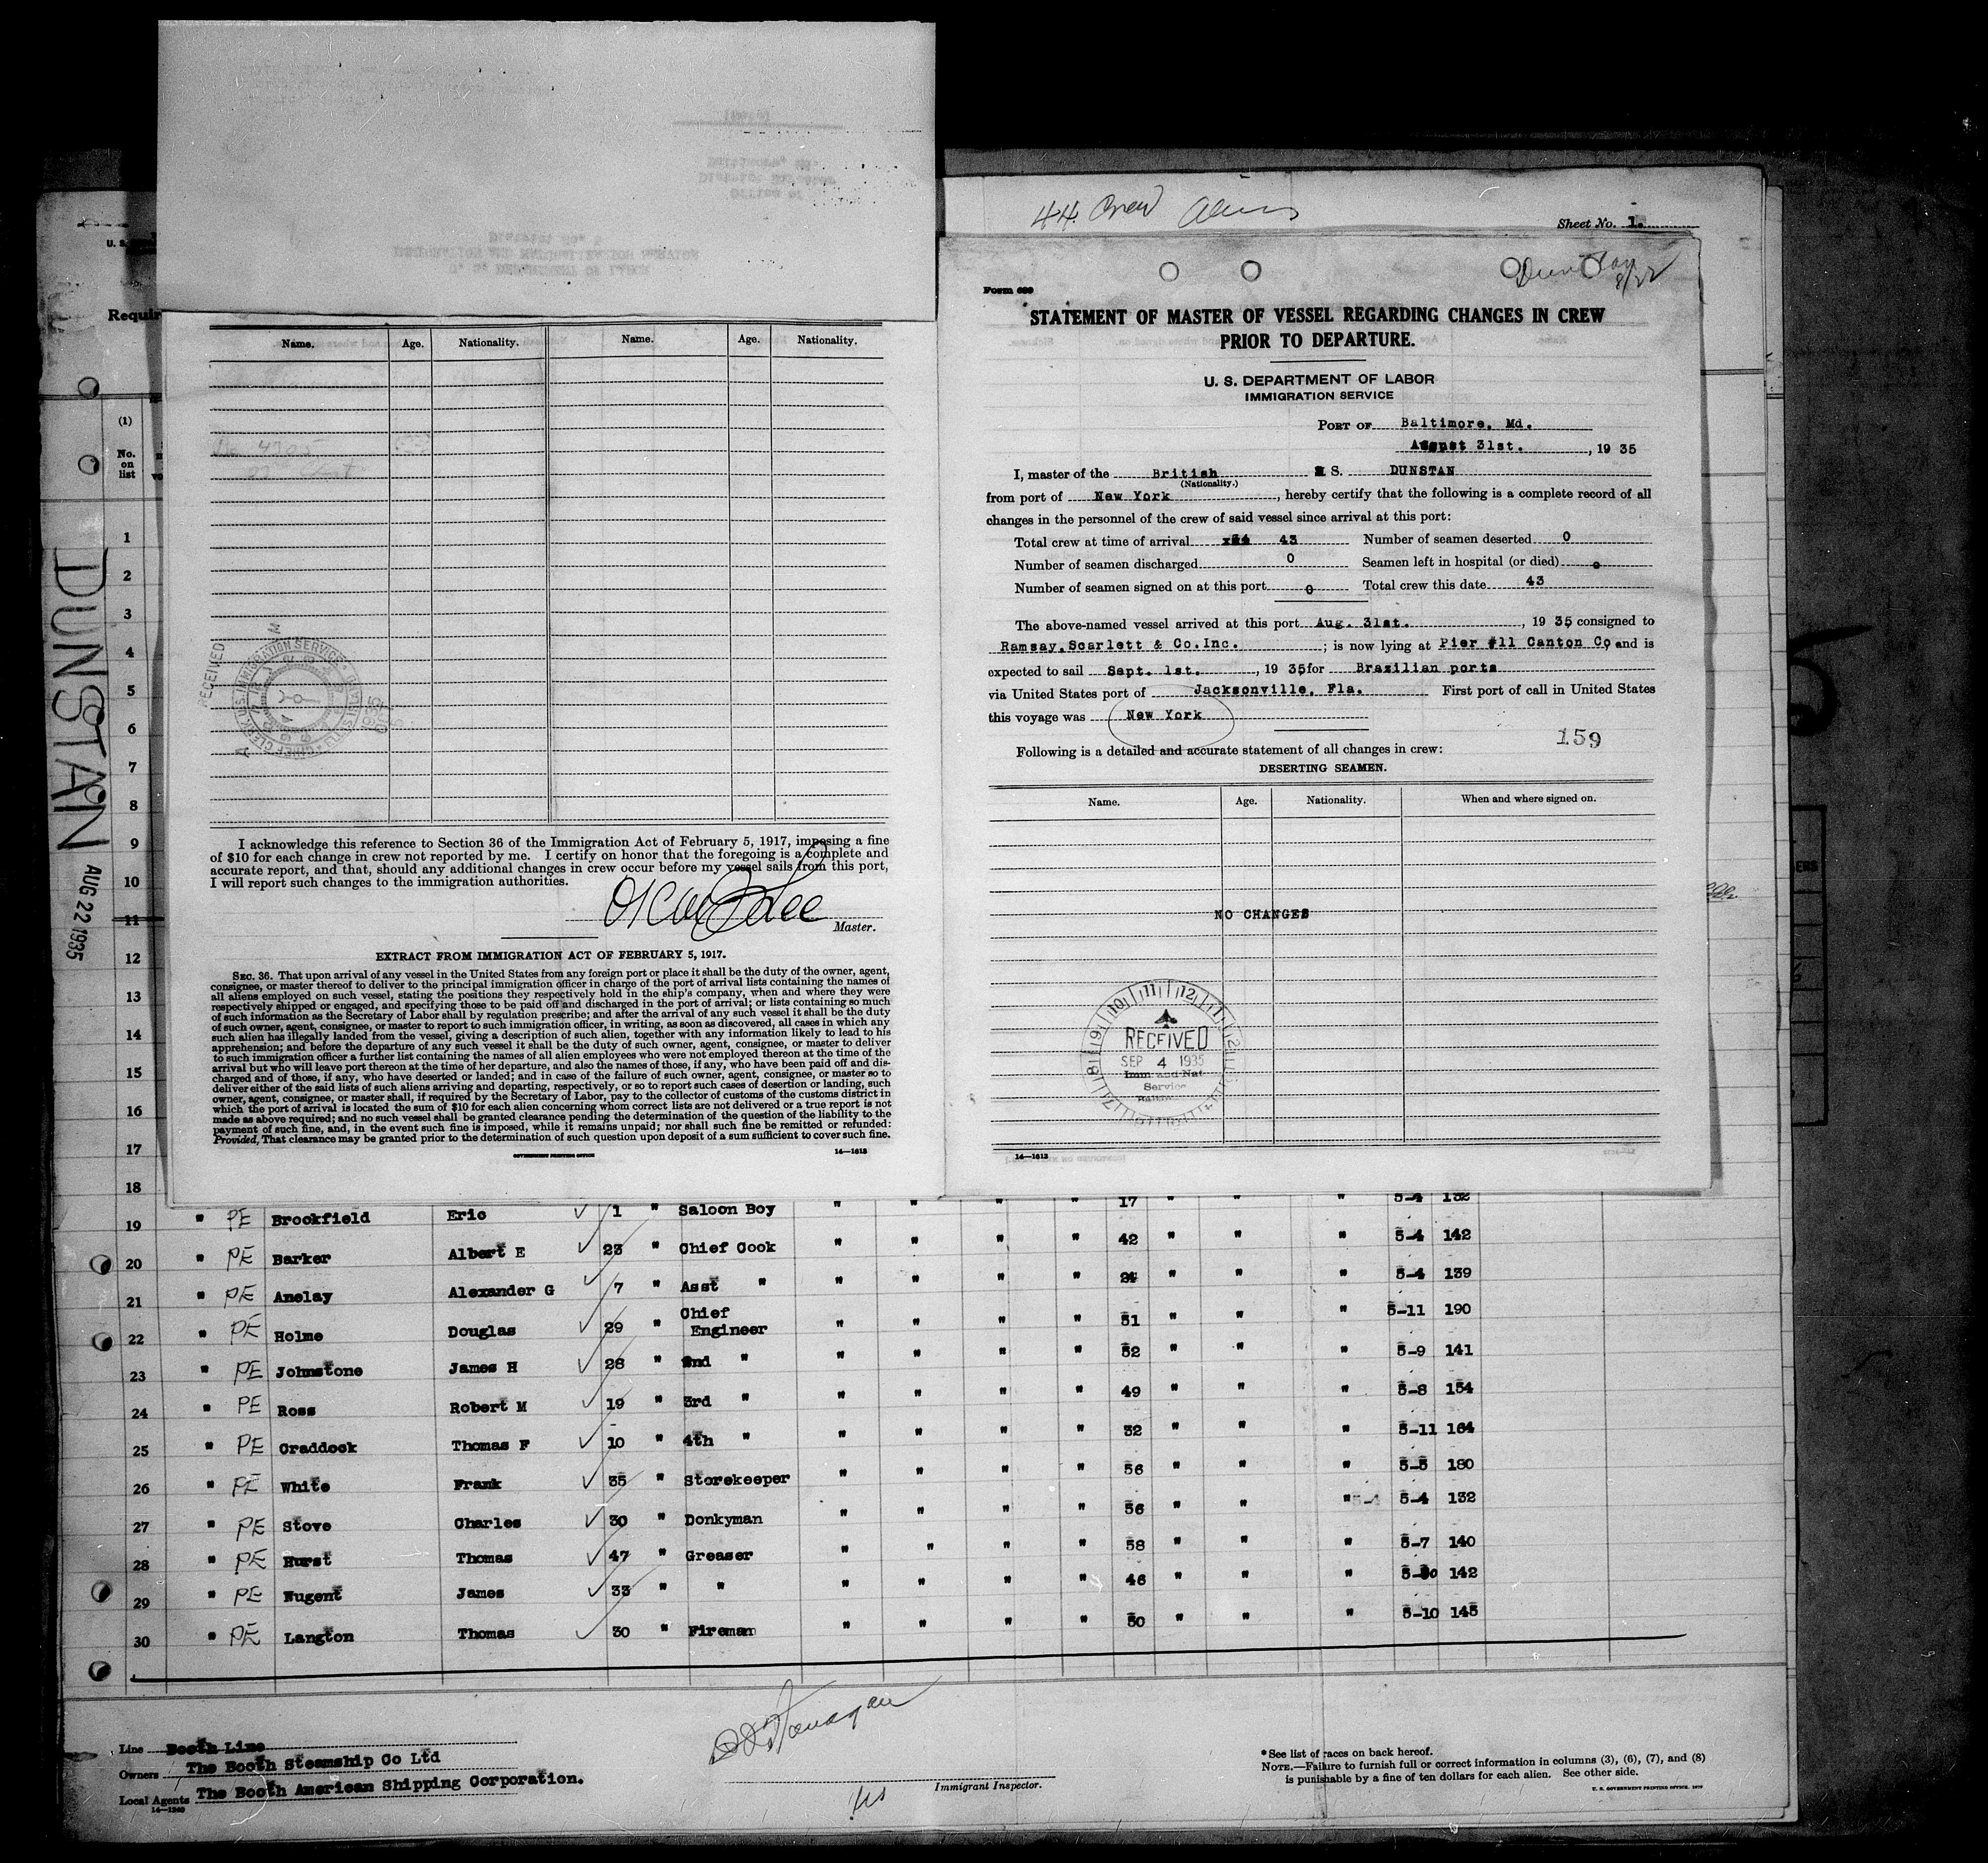 44 Crew Aliens
Sheet No. 1.
U. S.
Requir
(1)
No.
on
list
DUNSTAN
AUG 22 1935
1
2
3
4
5
6
7
8
9
10
11
12
13
14
15
16
17
18
Name. Age. Nationality. Name. Age. Nationality.
RECEIVED
I acknowledge this reference to Section 36 of the Immigration Act of February 5, 1917, imposing a fine
of $10 for each change in crew not reported by me. I certify on honor that the foregoing is a complete and
accurate report, and that, should any additional changes in crew occur before my vessel sails from this port,
I will report such changes to the immigration authorities.
Master.
EXTRACT FROM IMMIGRATION ACT OF FEBRUARY 5, 1917.
SEC. 36. That upon arrival of any vessel in the United States from any foreign port or place it shall be the duty of the owner, agent,
consignee, or master thereof to deliver to the principal immigration officer in charge of the port of arrival lists containing the names of
all aliens employed on such vessel, stating the positions they respectively hold in the ship's company, when and where they were
respectively shipped or engaged, and specifying those to be paid off and discharged in the port of arrival; or lists containing so much
of such information as the Secretary of Labor shall by regulation prescribe; and after the arrival of any such vessel it shall be the duty
of such owner, agent, consignee, or master to report to such immigration officer, in writing, as soon as discovered, all cases in which any
such alien has illegally landed from the vessel, giving a description of such alien, together with any information likely to lead to his
apprehension; and before the departure of any such vessel it shall be the duty of such owner, agent, consignee, or master to deliver
to such immigration officer a further list containing the names of all alien employees who were not employed thereon at the time of the
arrival but who will leave port thereon at the time of her departure, and also the names of those, if any, who have been paid off and dis-
charged and of those, if any, who have deserted or landed; and in case of the failure of such owner, agent, consignee, or master so to
deliver either of the said lists of such aliens arriving and departing, respectively, or so to report such cases of desertion or landing, such
owner, agent, consignee, or master shall, if required by the Secretary of Labor, pay to the collector of customs of the customs district in
which the port of arrival is located the sum of $10 for each alien concerning whom correct lists are not delivered or a true report is not
made as above required; and no such vessel shall be granted clearance pending the determination of the question of the liability to the
payment of such fine, and, in the event such fine is imposed, while it remains unpaid; nor shall such fine be remitted or refunded:
Provided, That clearance may be granted prior to the determination of such question upon deposit of a sum sufficient to cover such fine.
GOVERNMENT PRINTING OFFICE 14—1613
Dunstan
8/22
Form 689
STATEMENT OF MASTER OF VESSEL REGARDING CHANGES IN CREW
PRIOR TO DEPARTURE.
U. S. DEPARTMENT OF LABOR
IMMIGRATION SERVICE
PORT OF Baltimore, Md.
August 31st. , 19 35
I, master of the British S. S. DUNSTAN
(Nationality.)
from port of New York , hereby certify that the following is a complete record of all
changes in the personnel of the crew of said vessel since arrival at this port:
Total crew at time of arrival 43 Number of seamen deserted 0
Number of seamen discharged 0 Seamen left in hospital (or died) 0
Number of seamen signed on at this port 0 Total crew this date 43
The above-named vessel arrived at this port Aug. 31st. , 19 35 consigned to
Ramsay, Scarlett & Co.Inc. ; is now lying at Pier #11 Canton Co and is
expected to sail Sept. 1st. , 19 35 for Brazilian ports
via United States port of Jacksonville, Fla. First port of call in United States
this voyage was New York
159
Following is a detailed and accurate statement of all changes in crew:
DESERTING SEAMEN.
Name. Age. Nationality. When and where signed on.
NO CHANGES
10 11 12 1
RECEIVED
SEP 4 1935
Imm and Nat
Service
14—1613
ERS
17 " " " 5-4 132
19 " PE Brookfield Eric 1 " Saloon Boy " " " "
20 " PE Barker Albert E 23 " Chief Cook " " " " 42 " " " 5-4 142
21 " PE Anelay Alexander G 7 " Asst " " " " " " " " 5-4 139
22 " PE Holme Douglas 29 " Chief Engineer " " " " 51 " " " 5-11 190
23 " PE Johnstone James H 28 " 2nd " " " " " 52 " " " 5-9 141
24 " PE Ross Robert M 19 " 3rd " " " " " 49 " " " 5-8 154
25 " PE Craddock Thomas F 10 " 4th " " " " " 32 " " " 5-11 164
26 " PE White Frank 35 " Storekeeper " " " " 56 " " " 5-5 180
27 " PE Stove Charles 30 " Donkyman " " " " 56 " " " 5-4 132
28 " PE Hurst Thomas 47 " Greaser " " " " 58 " " " 5-7 140
29 " PE Nugent James 33 " " " " " " 46 " " " 142
30 " PE Langton Thomas 30 " Fireman " " " " 50 " " " 5-10 145
Line Booth Line
Owners The Booth Steamship Co Ltd
Local Agents The Booth American Shipping Corporation.
14—1240
Immigrant Inspector.
*See list of races on back hereof.
NOTE.—Failure to furnish full or correct information in columns (3), (6), (7), and (8)
is punishable by a fine of ten dollars for each alien. See other side.
U. S. GOVERNMENT PRINTING OFFICE